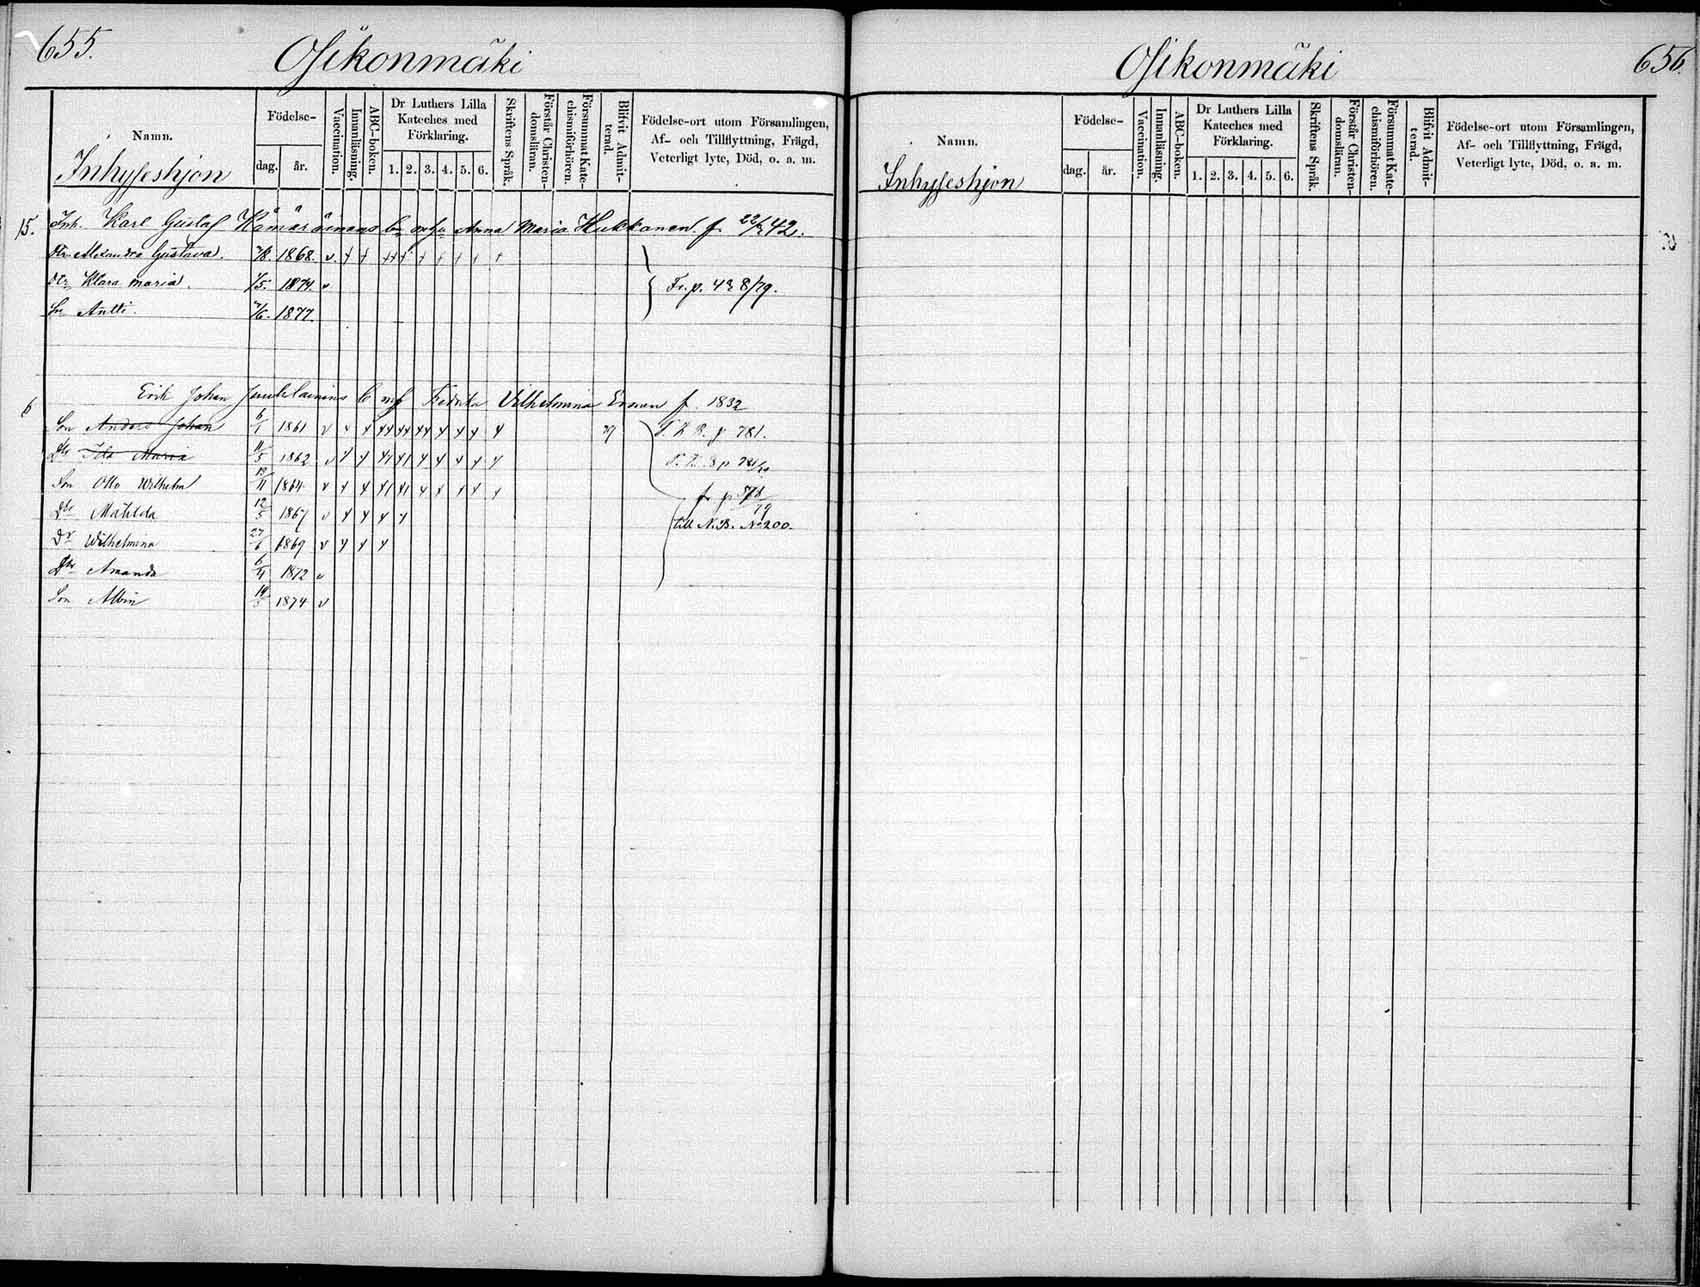 655.
Osikonmäki
Namn.
Inhyseshjon
Födelse-
dag. år.
Vaccination.
Innanläsning.
ABC-boken.
Dr Luthers Lilla
Kateches med
Förklaring.
1. 2. 3. 4. 5. 6.
Skriftens Språk.
Förstår Christen-
domsläran.
Försummat Kate-
chismiförhören.
Blifvit Admit-
terad.
Födelse-ort utom Församlingen,
Af- och Tillflyttning, Frägd,
Veterligt lyte, Död, o. a. m.
15. Inh. Karl Gustaf Hämäräinens Bn m fr Anna Maria Hukkanen f. 22/2 42.
Dtr Alexandra Gustava. 1868.
Dtr Klara Maria. 1/5. 1874. Fr. p. 428/79.
Sn Antti. 1877.
6 Erik Johan B m f Fredrika Vilhelmina f. 1832
Son Anders Johan 6/1 1861 T. K. B. p 781.
Dtr Ida Maria 11/5 1862
Son Otto Wilhelm 1864 fr p 578/79
Dtr Matilda 12/5 1867 till N. B. No 200.
Dr Wilhelmina 1869
Dtr Amanda 6/11 1872
Son Albin 14/5 1874
656.
Osikonmäki
Namn.
Inhyseshjon
Födelse-
dag. år.
Vaccination.
Innanläsning.
ABC-boken.
Dr Luthers Lilla
Kateches med
Förklaring.
1. 2. 3. 4. 5. 6.
Skriftens Språk.
Förstår Christen-
domsläran.
Försummat Kate-
chismiförhören.
Blifvit Admit-
terad.
Födelse-ort utom Församlingen,
Af- och Tillflyttning, Frägd,
Veterligt lyte, Död, o. a. m.